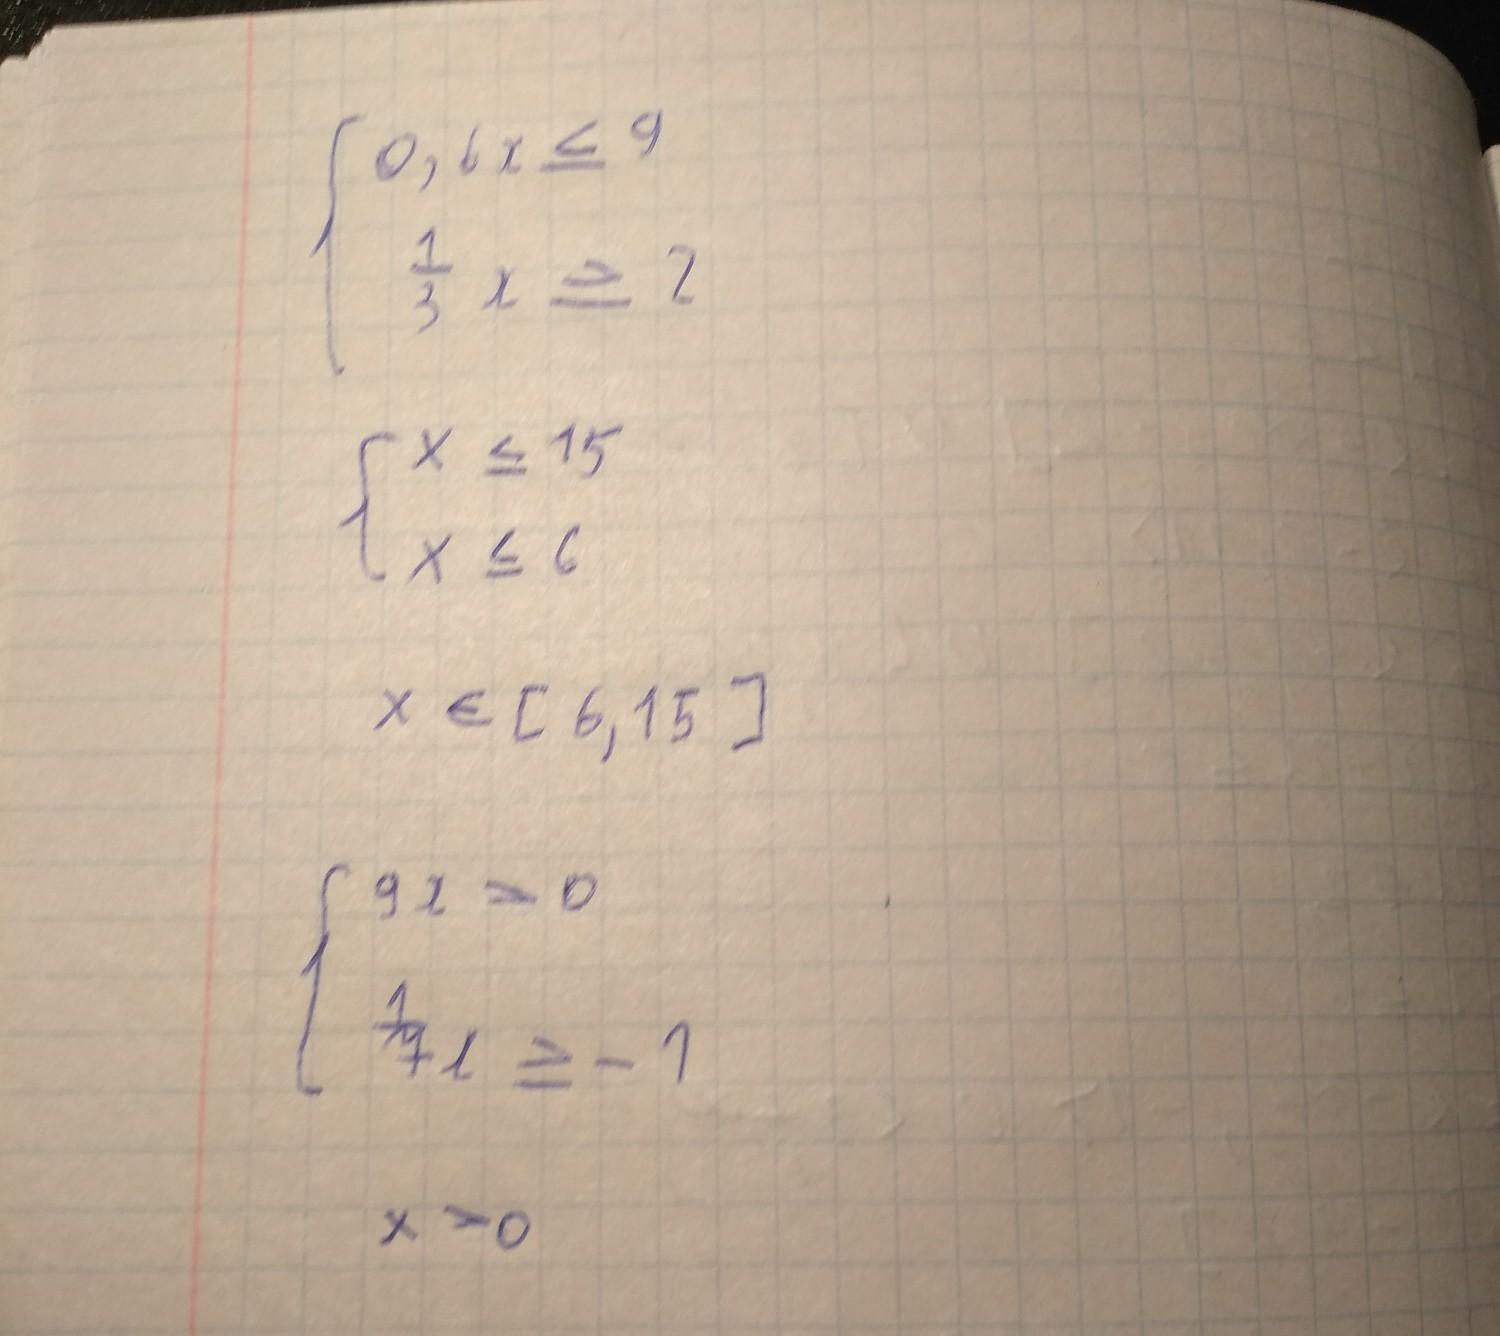 { 0,6x ≤ 9
1/3 x ≥ 2
{ x ≤ 15
x ≤ 6
x ∈ [6,15]
{ 9x > 0
1/7 x ≥ -1
x > 0